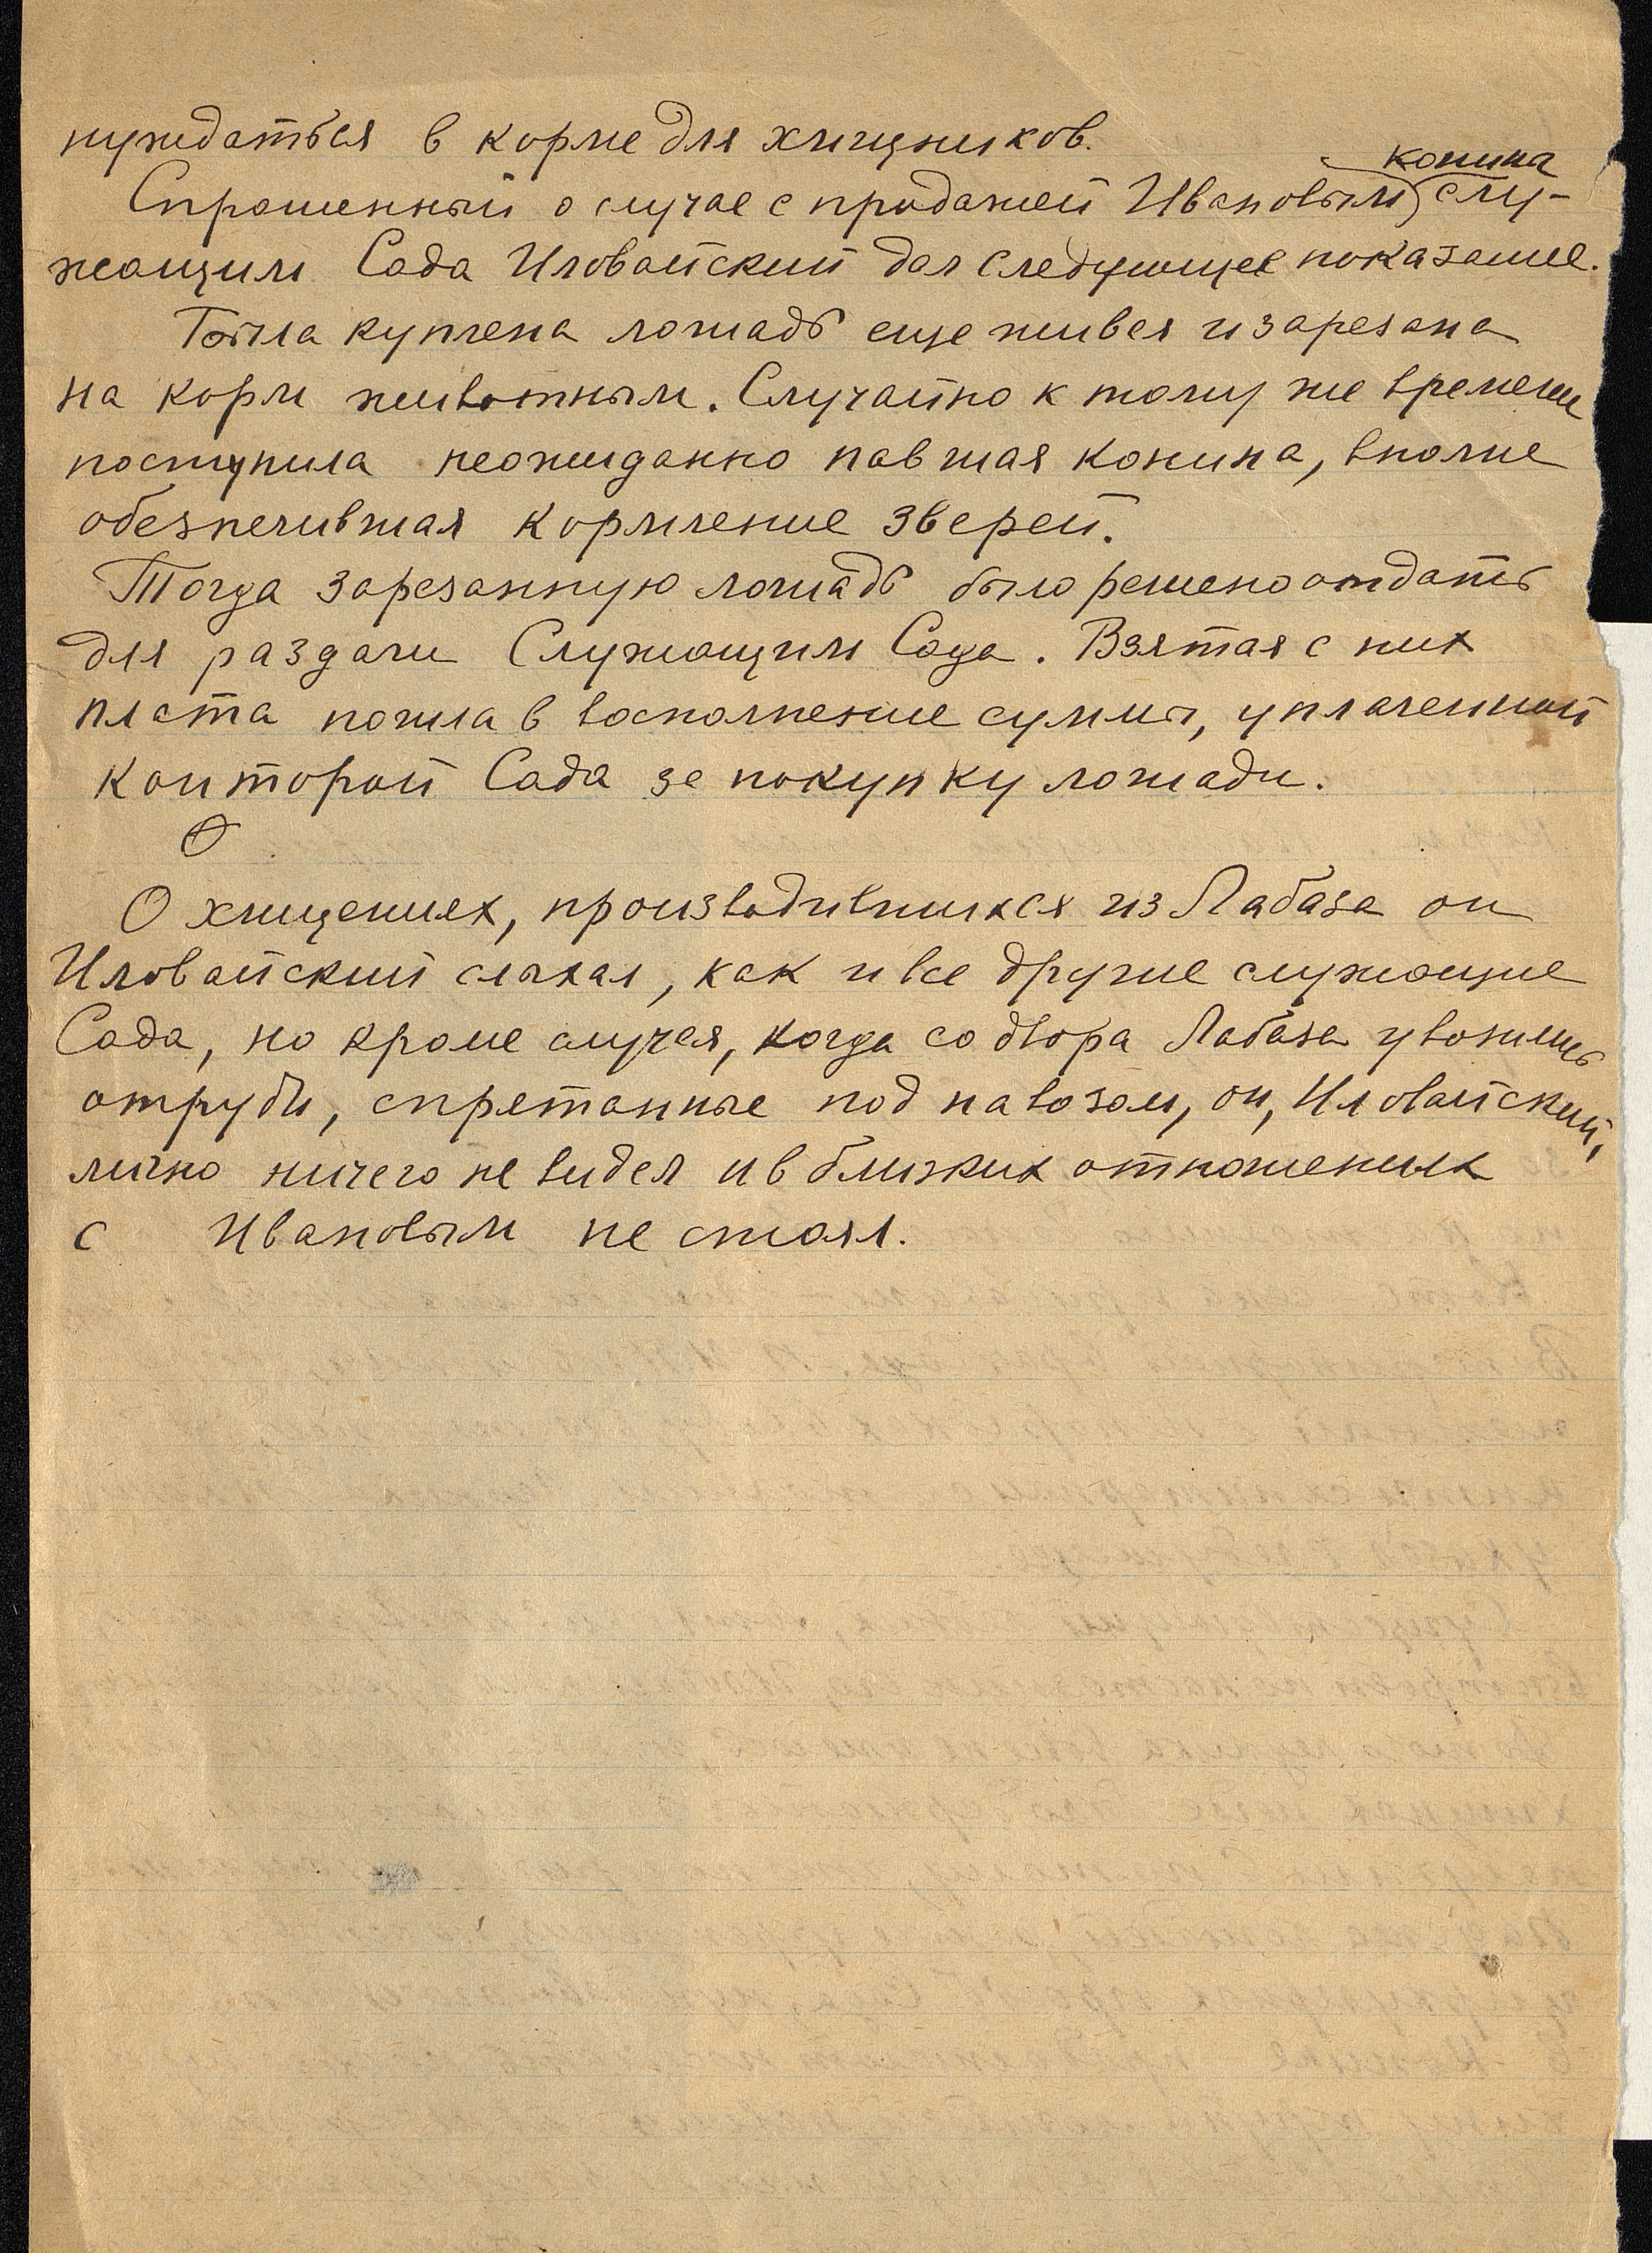 нуждаться в корме для хищников.
конина
Спрошенный о случае с продажей Ивановым слу-
жащим Сада Иловайский дал следующее показание.
Была куплена лошадь еще живая и зарезана
на корм животным. Случайно к тому же времени
поступила неожиданно павшая конина, вполне
обезпечившая кормление зверей.
Тогда зарезанную лошадь было решено отдать
для раздачи Служащим Сада. Взятая с них
плата пошла в восполнение суммы, уплаченной
конторой Сада за покупку лошади.
О
О хищениях, производившихся из Лабаза он
Иловайский слыхал, как и все другие служащие
Сада, но кроме случая, когда со двора Лабаза увозились
отруби, спрятанные под навозом, он, Иловайский,
лично ничего не видел и в близких отношениях
с Ивановым не стоял.